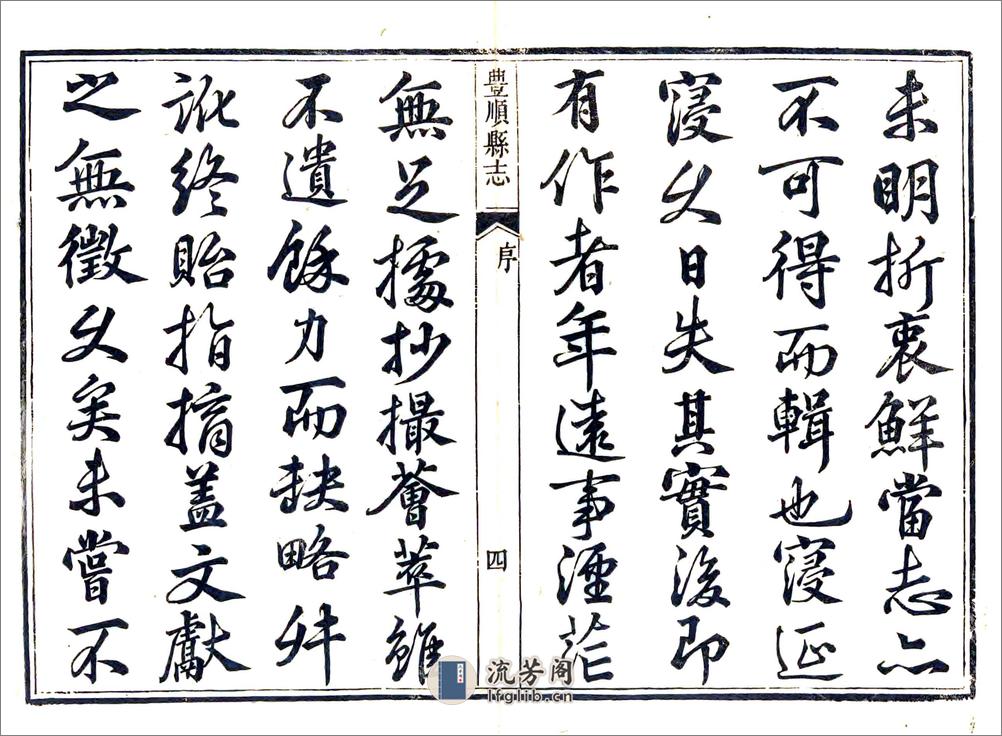 未明折衷鮮當志亦
不可得而輯也寖延
寖久日失其實後即
有作者年遠事湮茫
豐順縣志 序 四
無足據抄撮薈萃雖
不遺餘力而缺略舛
訛終貽指摘蓋文獻
之無徵久矣未嘗不
流芳阁
lfglib.cn